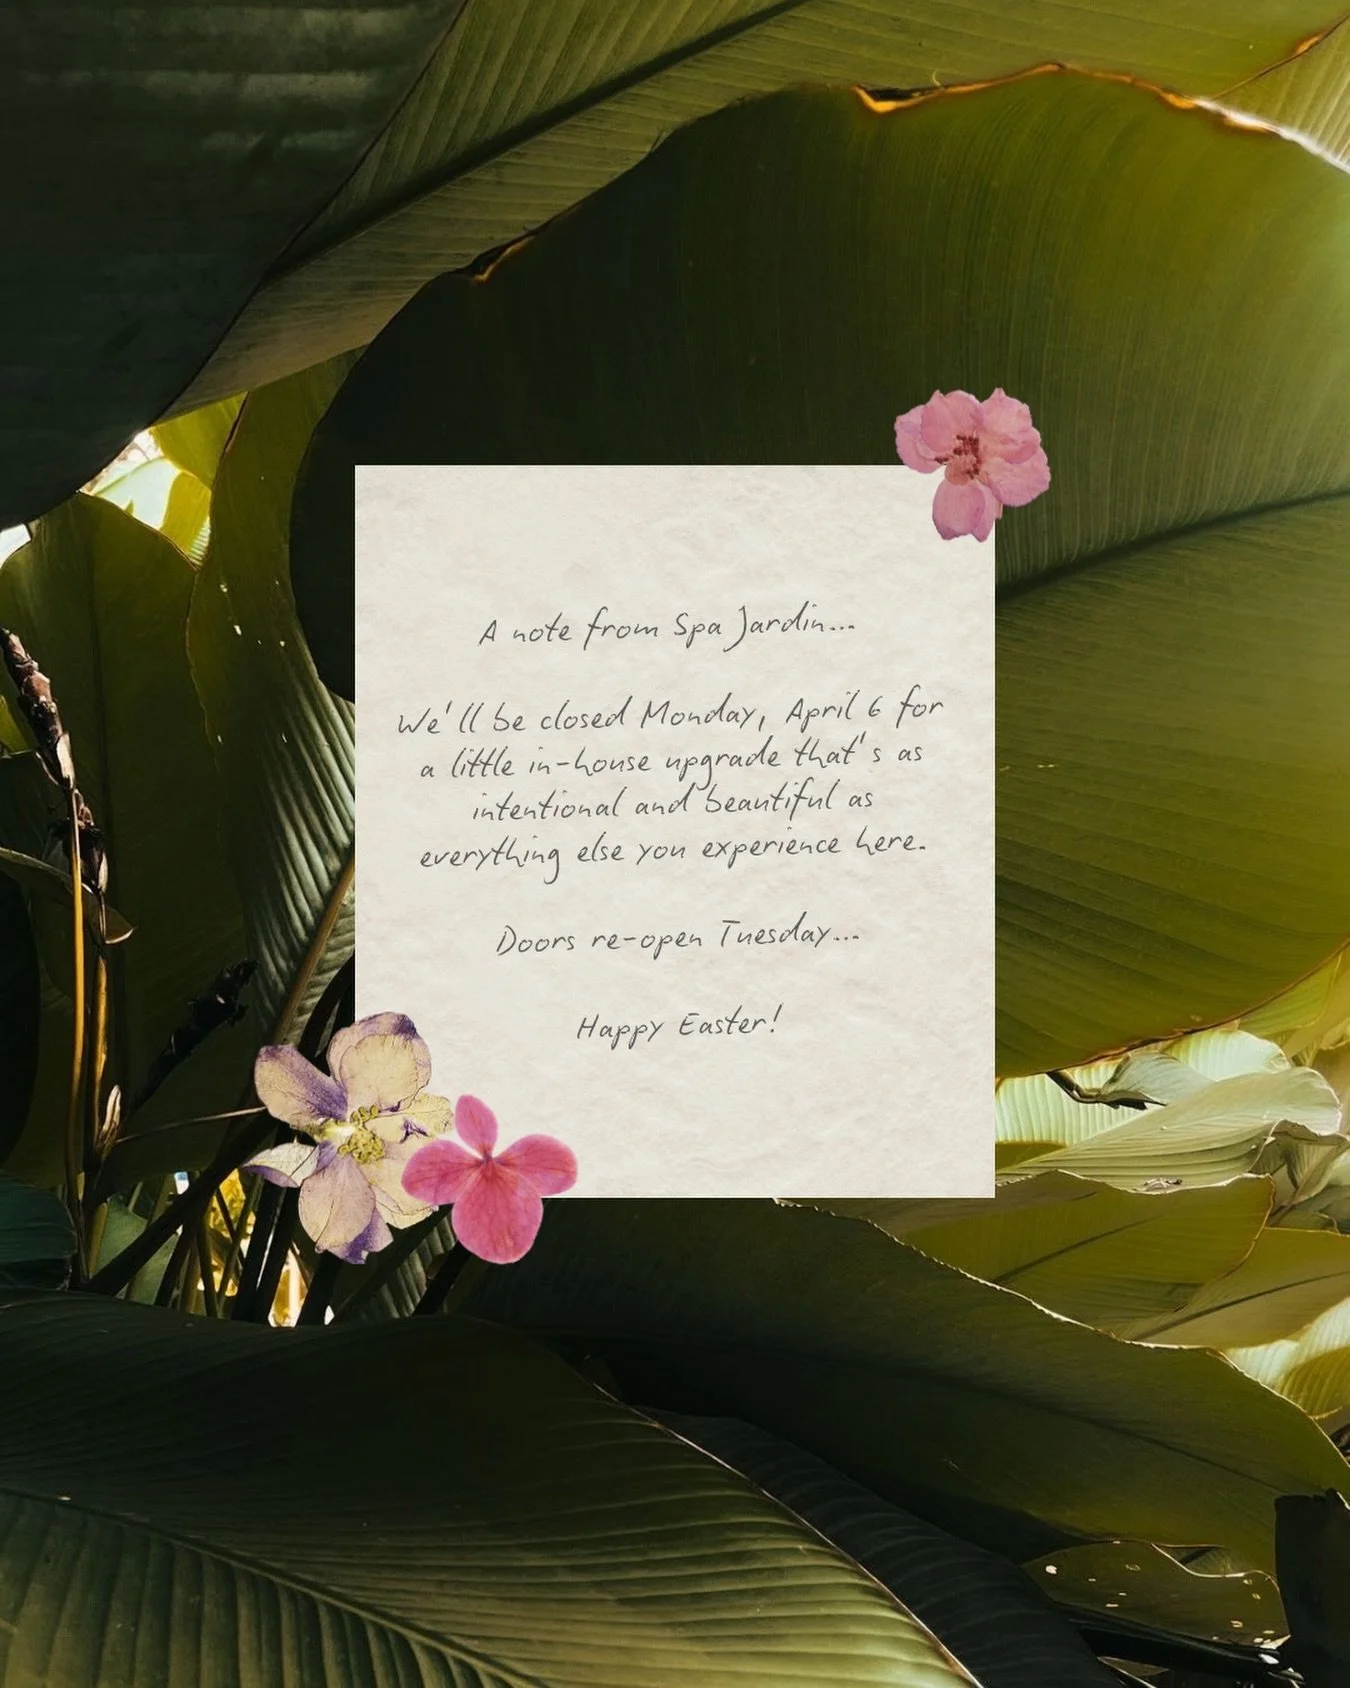 A note from Spa Jardin...
We'll be closed Monday, April 6 for
a little in-house upgrade that's as
intentional and beautiful as
everything else you experience here.
Doors re-open Tuesday...
Happy Easter!